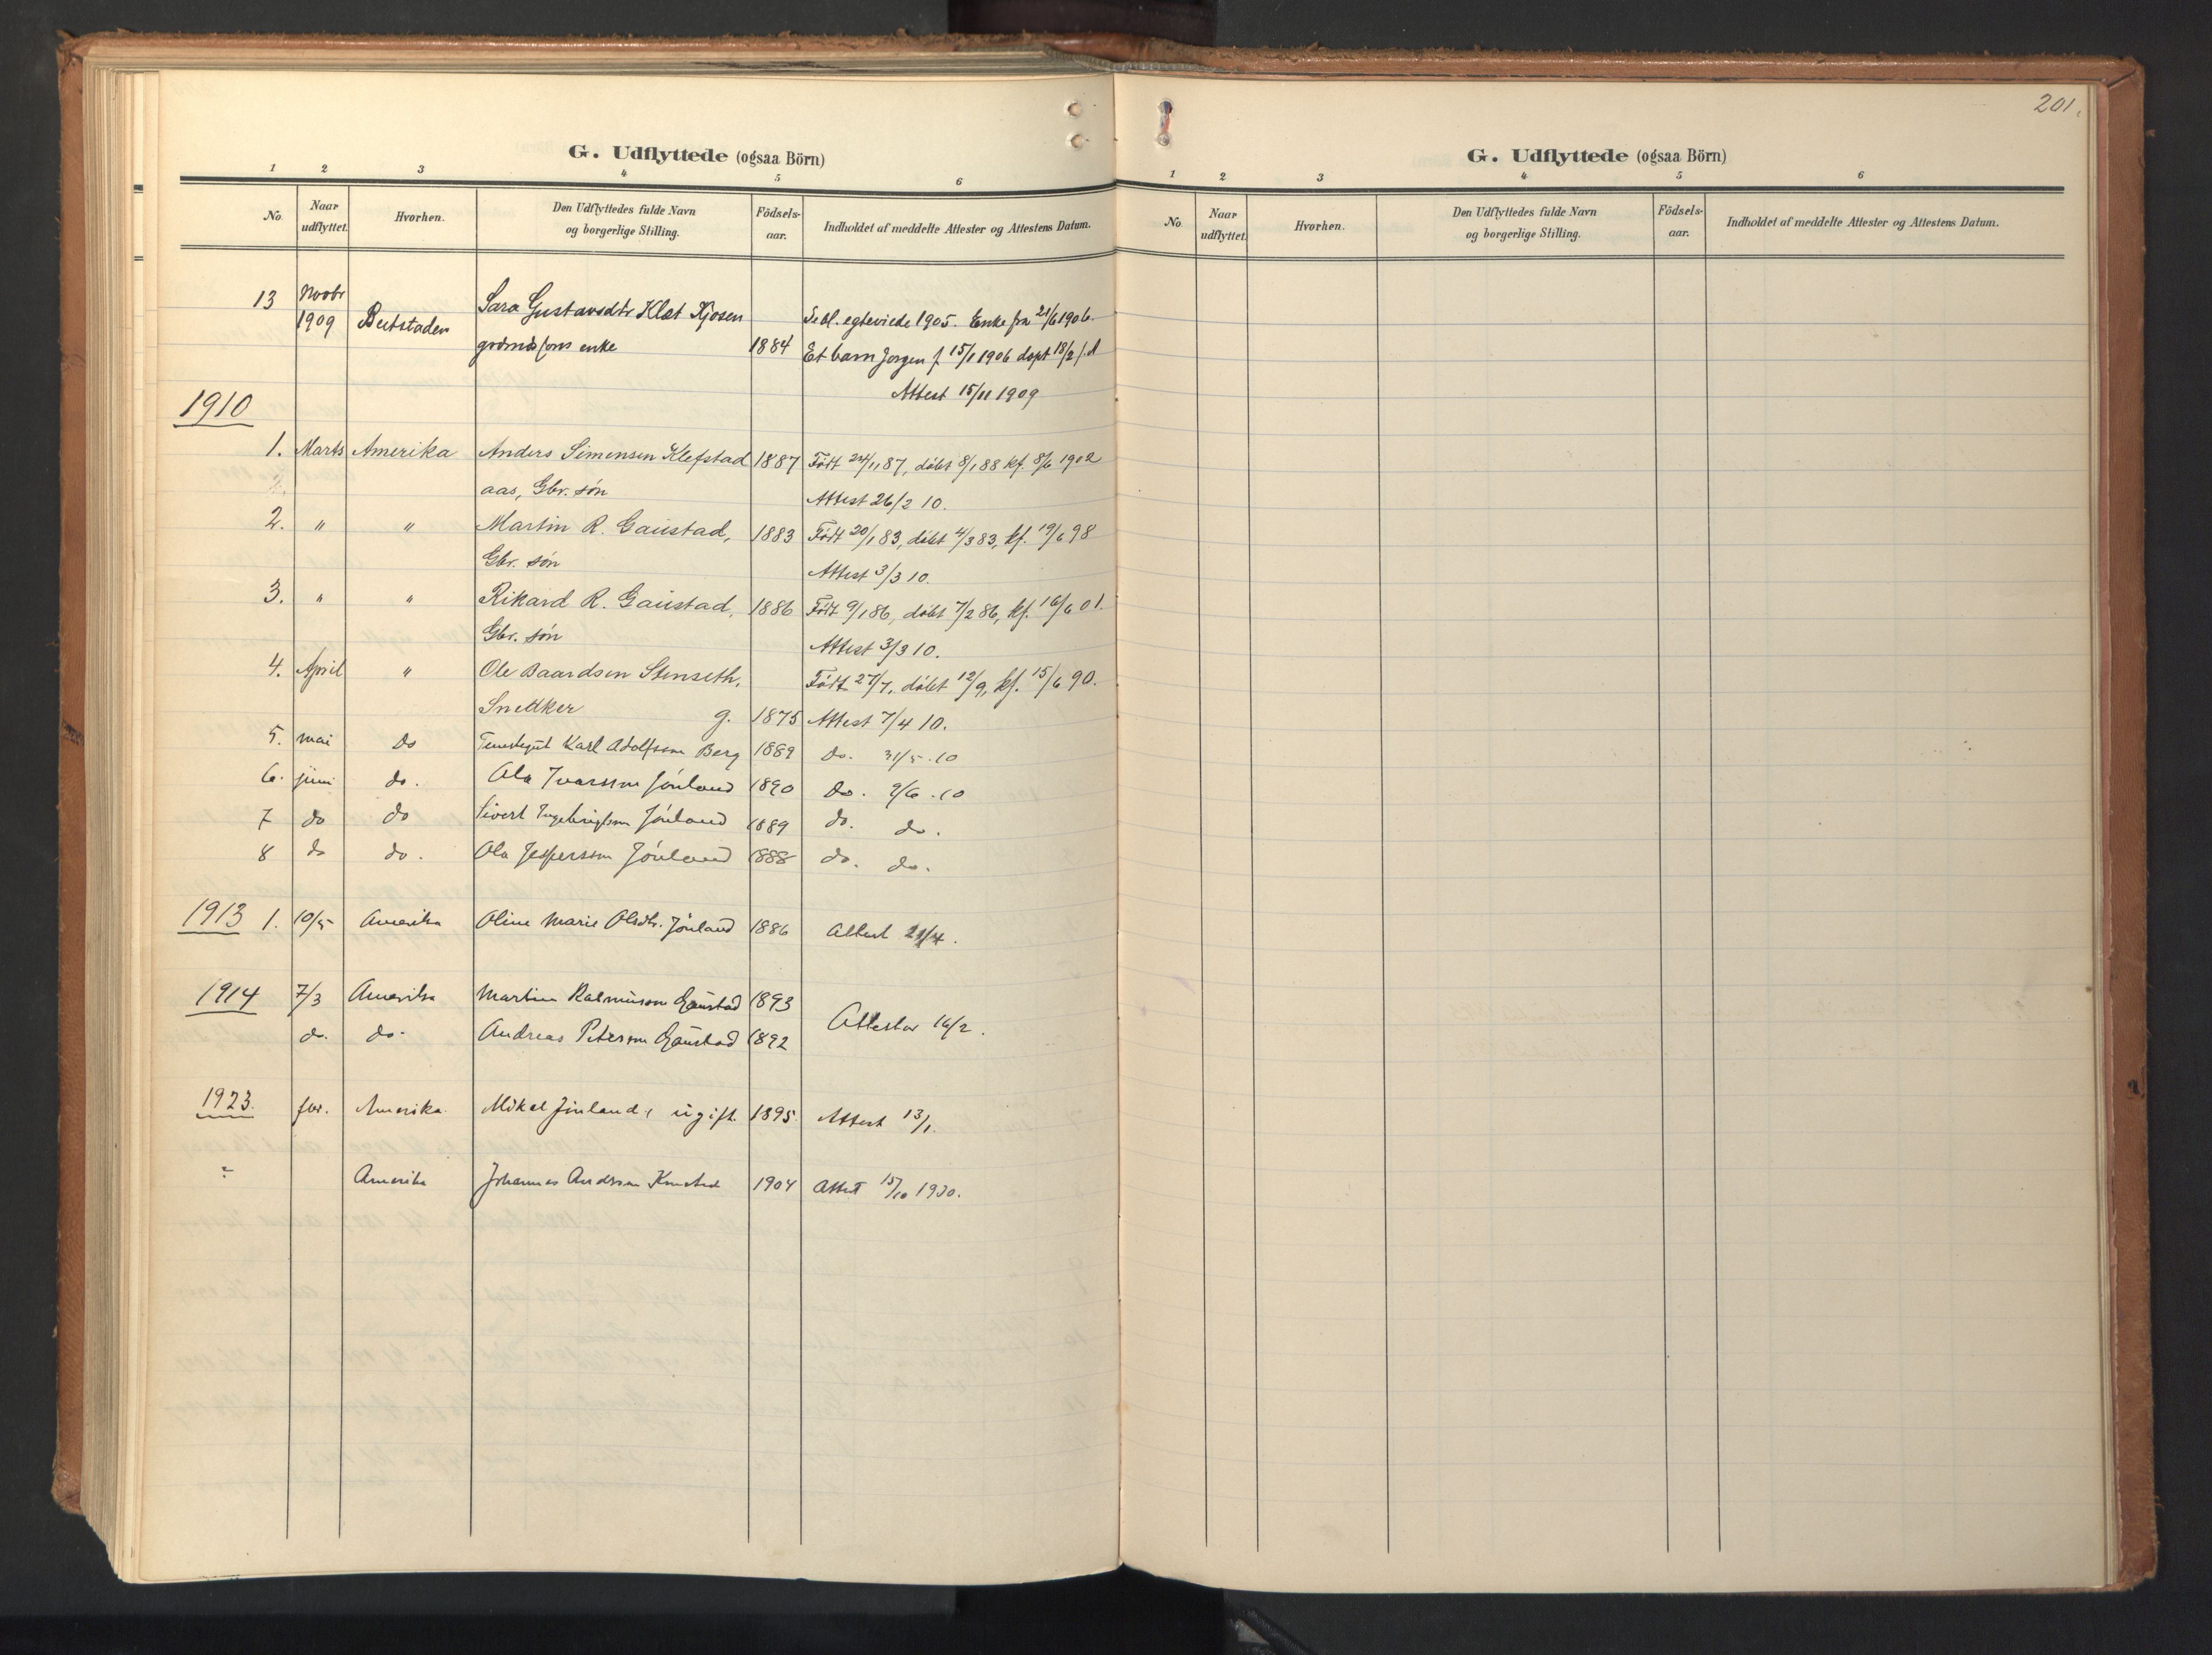 201.
G. Udflyttede (ogsaa Börn)
1 2 3 4 5 6
No. Naar udflyttet. Hvorhen. Den Udflyttedes fulde Navn og borgerlige Stilling. Födsels-aar. Indholdet af meddelte Attester og Attestens Datum.
13 Novbr 1909 Beitstaden Sara Gustavsdtr Klæt Kjosen 1884 egteviede 1905. Enke fra 21/6 1906.
enke Et barn Jorgen f 15/1 1906 døpt 18/2 s.d
Attest 15/11 1909
1910
1. Marts Amerika Anders Simensen Klefstad 1887 Født 24/11 87, døbt 8/1 88 kf. 8/6 1902
aas, Gbr. søn Attest 26/2 10.
2. " " Martin R. Gaustad, 1883 Født 20/1 83, døbt 4/3 83, kf. 19/6 98
Gbr. søn Attest 3/3 10.
3. " " Rikard R. Gaustad, 1886 Født 9/1 86, døbt 7/2 86, kf. 16/6 01.
Gbr. søn Attest 3/3 10.
4. April " Ole Baardsen Stenseth, Født 27/7, døbt 12/9, kf. 15/6 90.
Snedker g. 1875 Attest 7/4 10.
5. mai do Tenestgut Karl Adolfson Berg 1889 do. 31/5 .10
6. juni do. Ola Ivarsson Jønland 1890 do. 9/6 .10
7 do do Sivert Ingebrigtson Jønland 1889 do. do.
8 do do. Ola Jesperson Jønland 1888 do. do.
1913 1. 10/5 Amerika Oline Marie Olsdtr. Jønland 1886 Attest 21/4.
1914 7/3 Amerika Martin Rasmuson Gaustad 1893
Attester 16/2.
do. do. Andreas Peterson Gaustad 1892
1923. Amerika. Mikal Jinland, ugift. 1895. Attest 13/1.
Amerika Johannes Andersen 1904 Attest 15/10 1930.
G. Udflyttede (ogsaa Börn)
1 2 3 4 5 6
No. Naar udflyttet. Hvorhen. Den Udflyttedes fulde Navn og borgerlige Stilling. Födsels-aar. Indholdet af meddelte Attester og Attestens Datum.